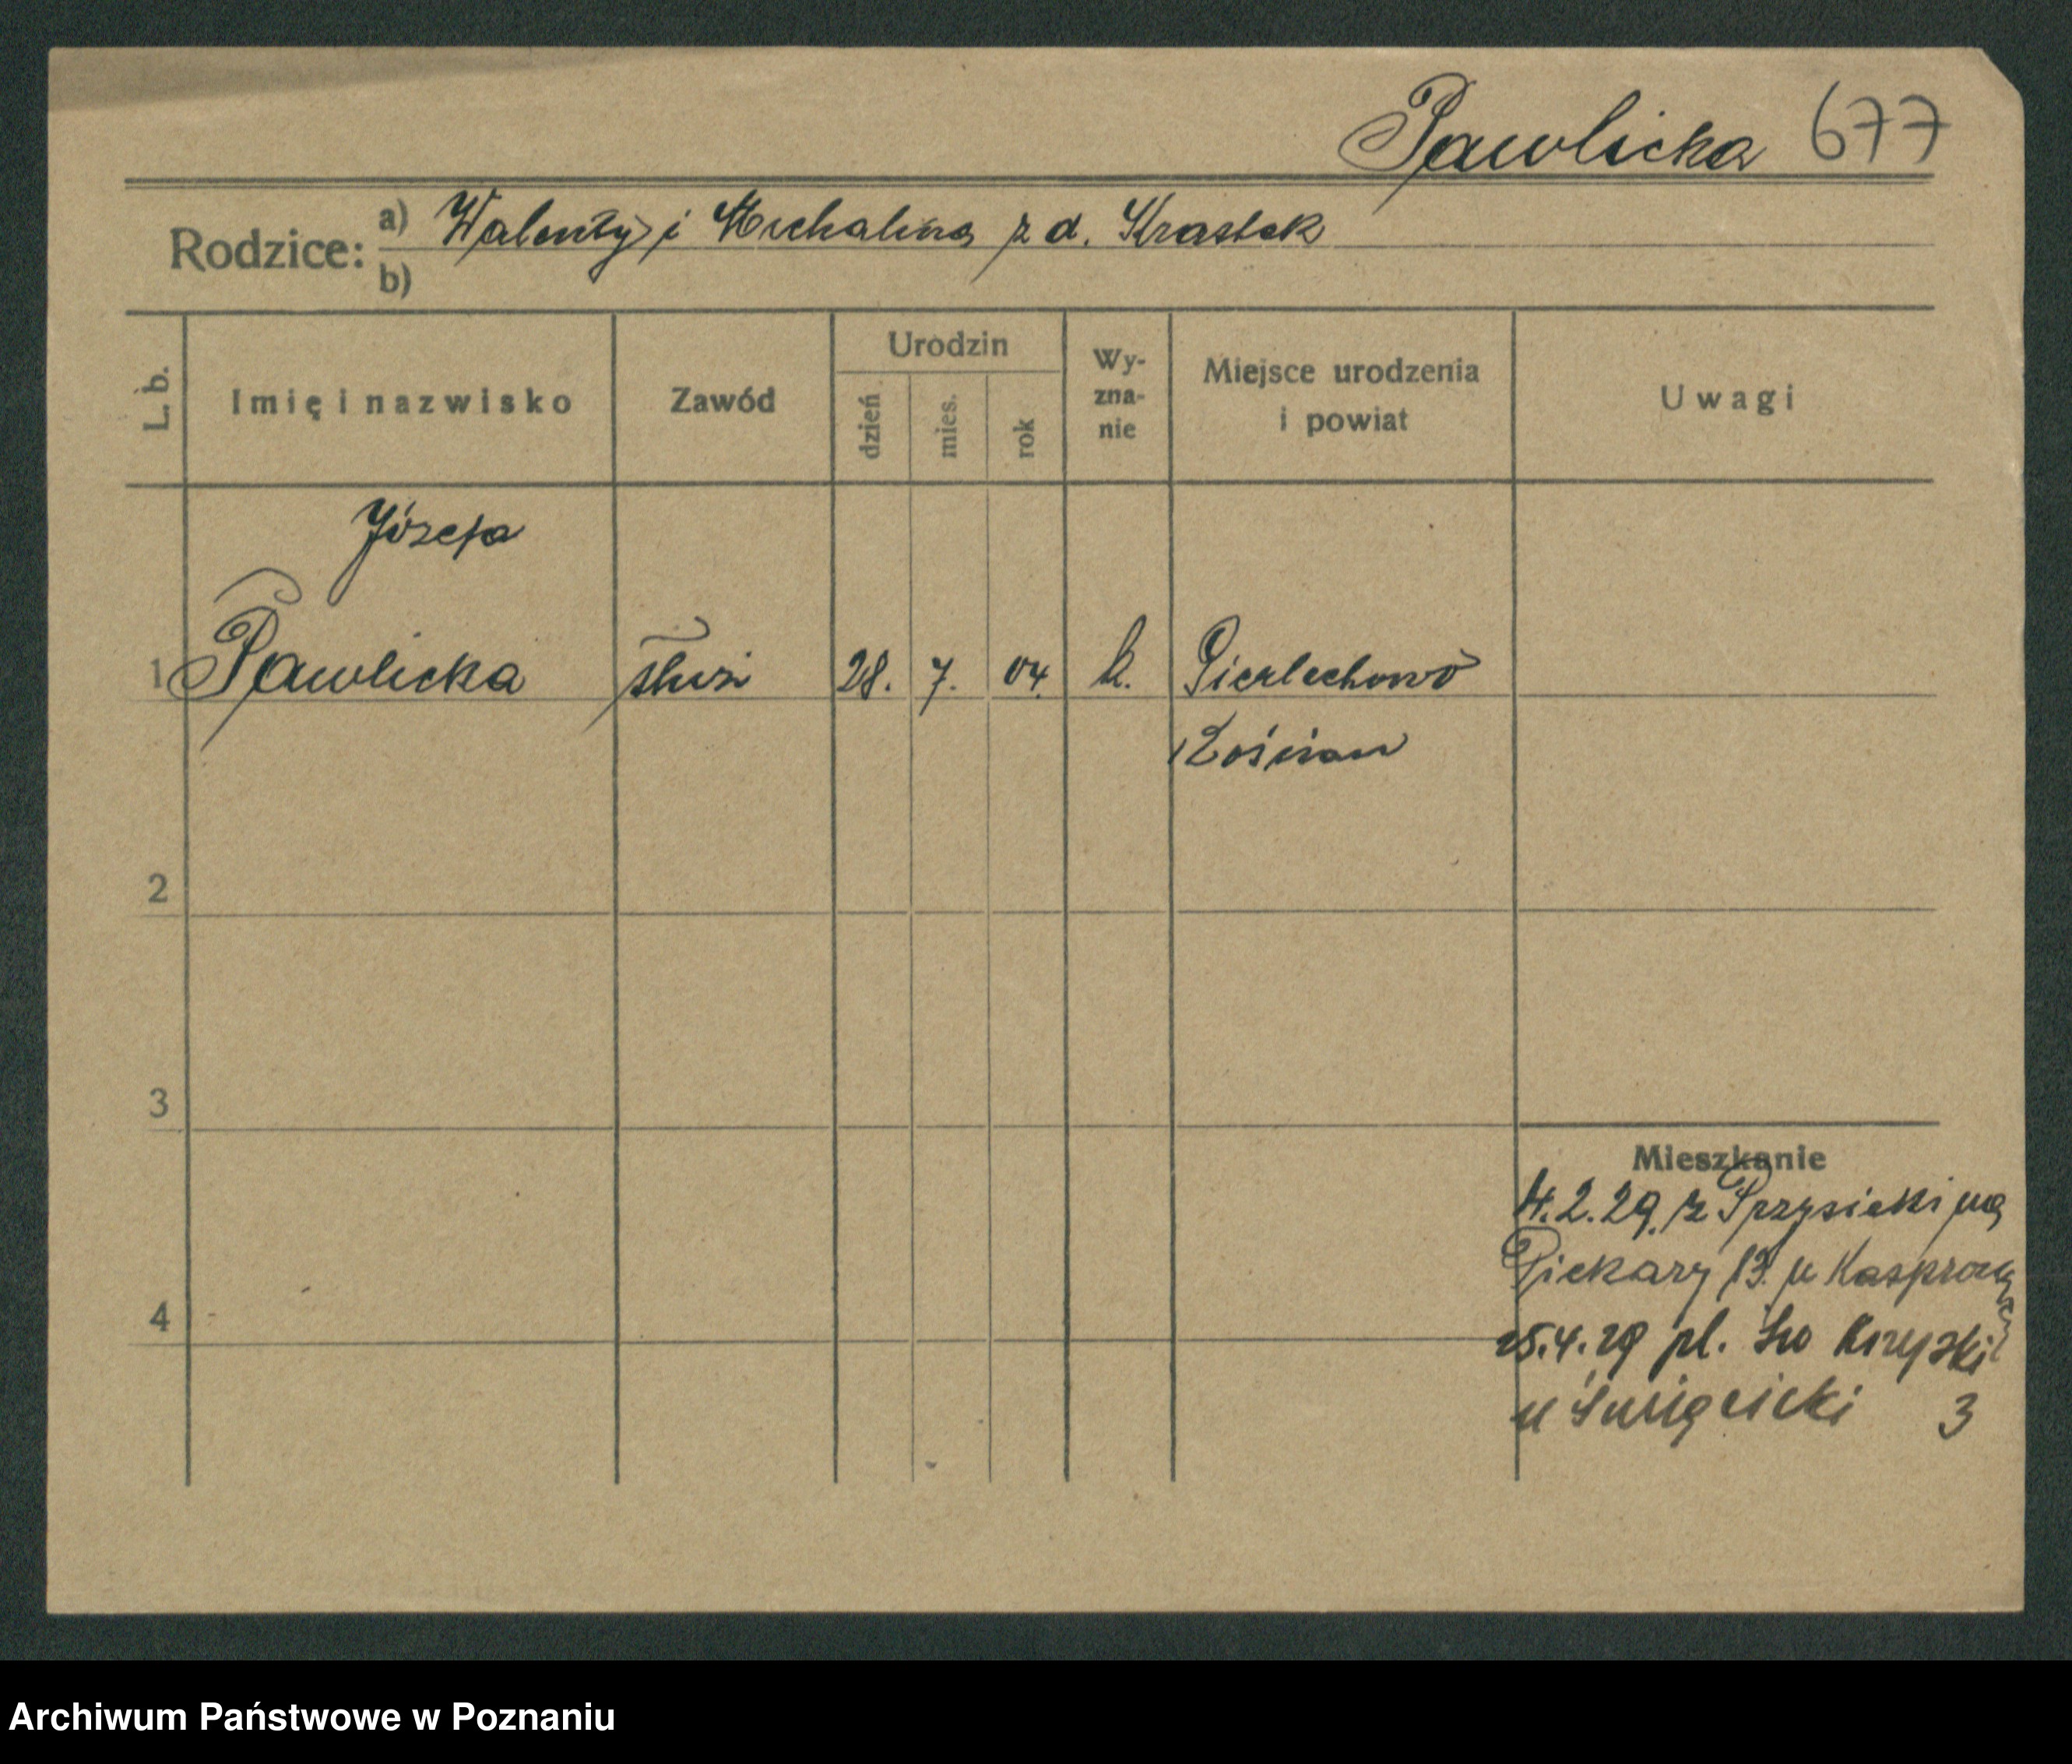 Pawlicka 677
Rodzice: a) Walenty i Michalina z d. Krastek
b)
L. b.
Imię i nazwisko
Zawód
Urodzin
dzień
mies.
rok
Wy-
zna-
nie
Miejsce urodzenia
i powiat
Uwagi
Józefa
1 Pawlicka służ 28. 7. 04. k. Pierlechowo
Kościan
2
3
Mieszkanie
4.2.29. z Przysieki na
Piekary 13. u
4
25.4.29 pl. Św Krzyski
u Święcicki 3
Archiwum Państwowe w Poznaniu